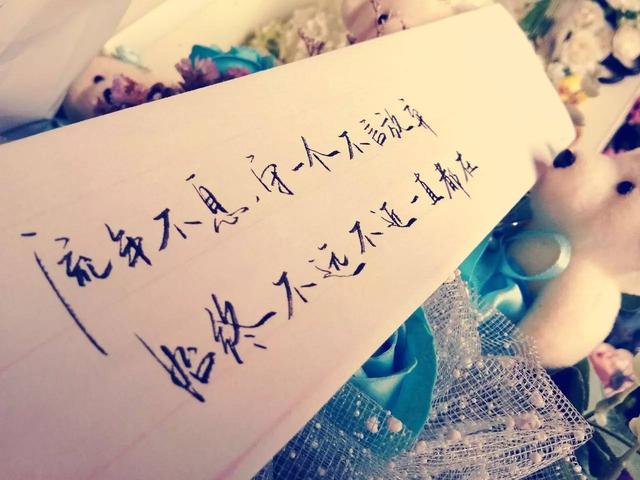 流年不息,守一个不言放弃
始终不远不近一直都在